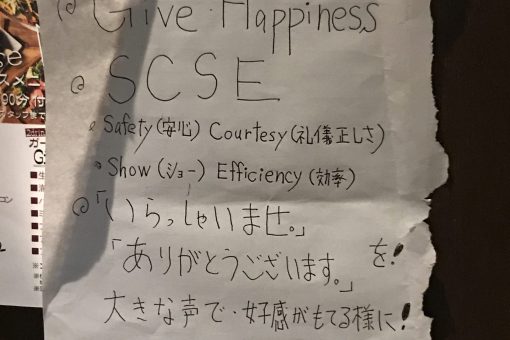 ◎ Give Happiness
◎ SCSE
• Safety(安心) Courtesy(礼儀正しさ)
• Show(ショー) Efficiency(効率)
◎「いらっしゃいませ。」
「ありがとうございます。」を!
大きな声で・好感がもてる様に!
スメー
90分付